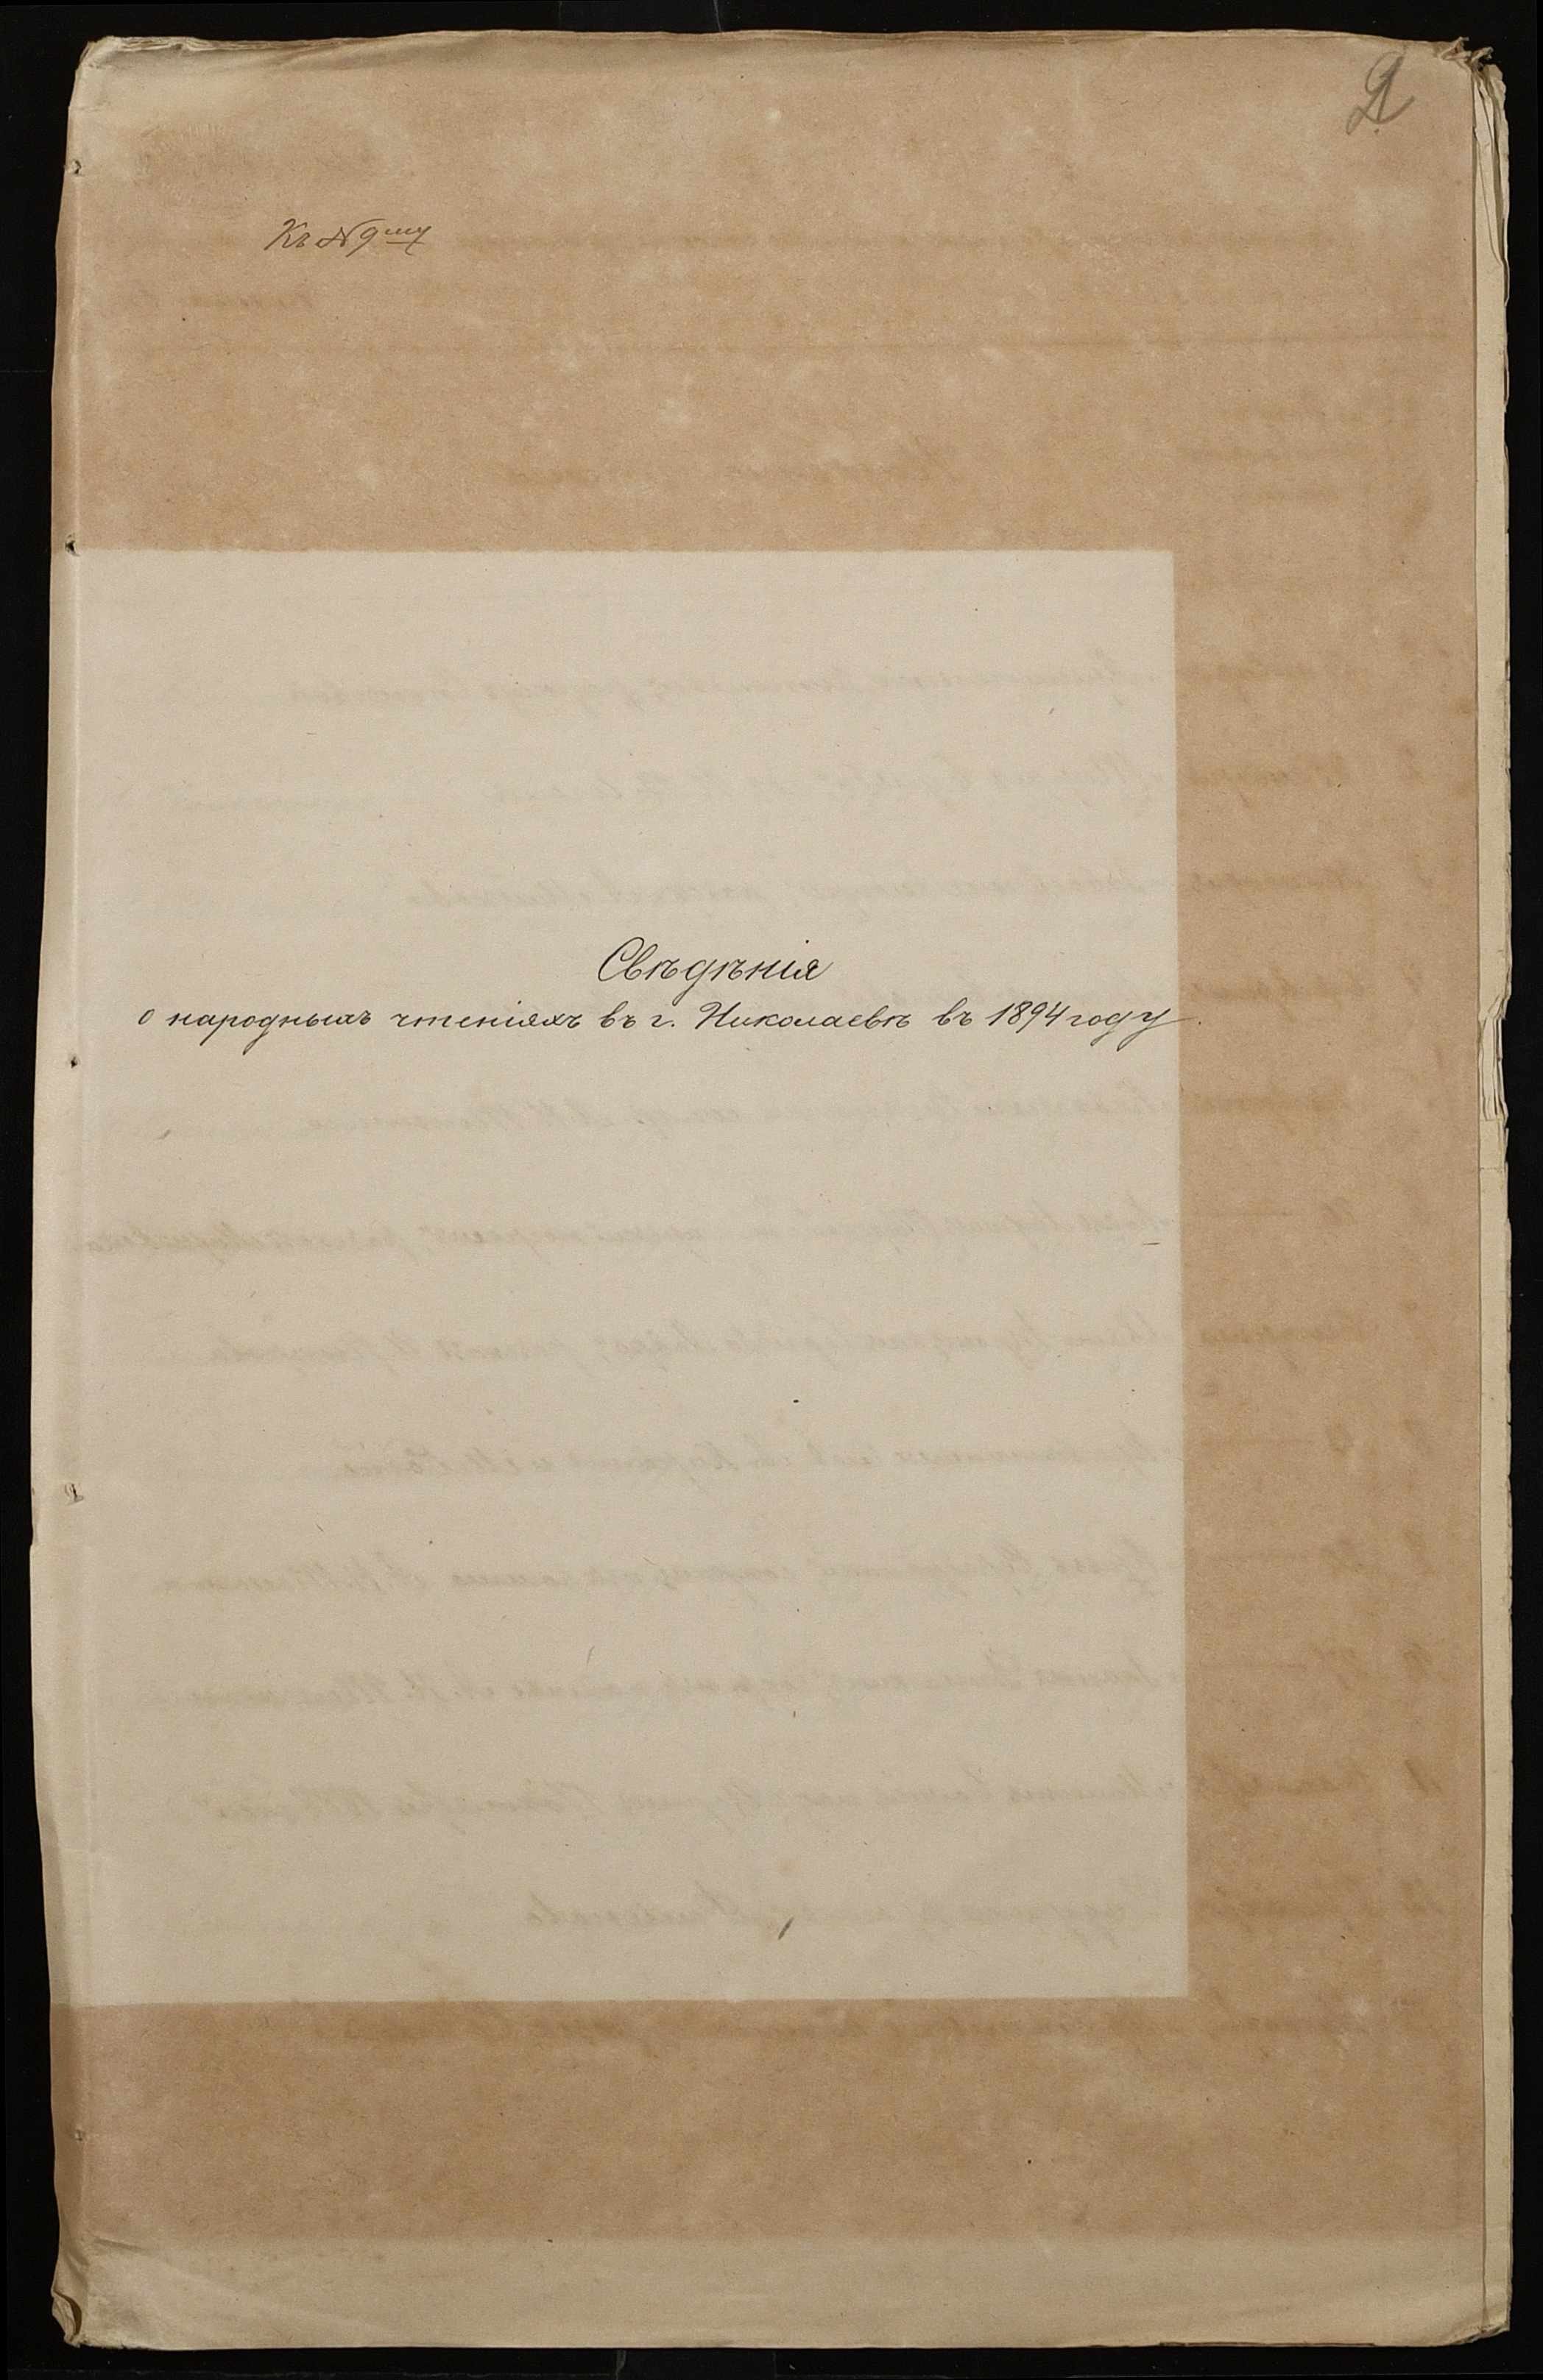 Къ № 9му
Свѣдѣнія
о народныхъ чтеніяхъ въ г. Николаевѣ въ 1894 году.